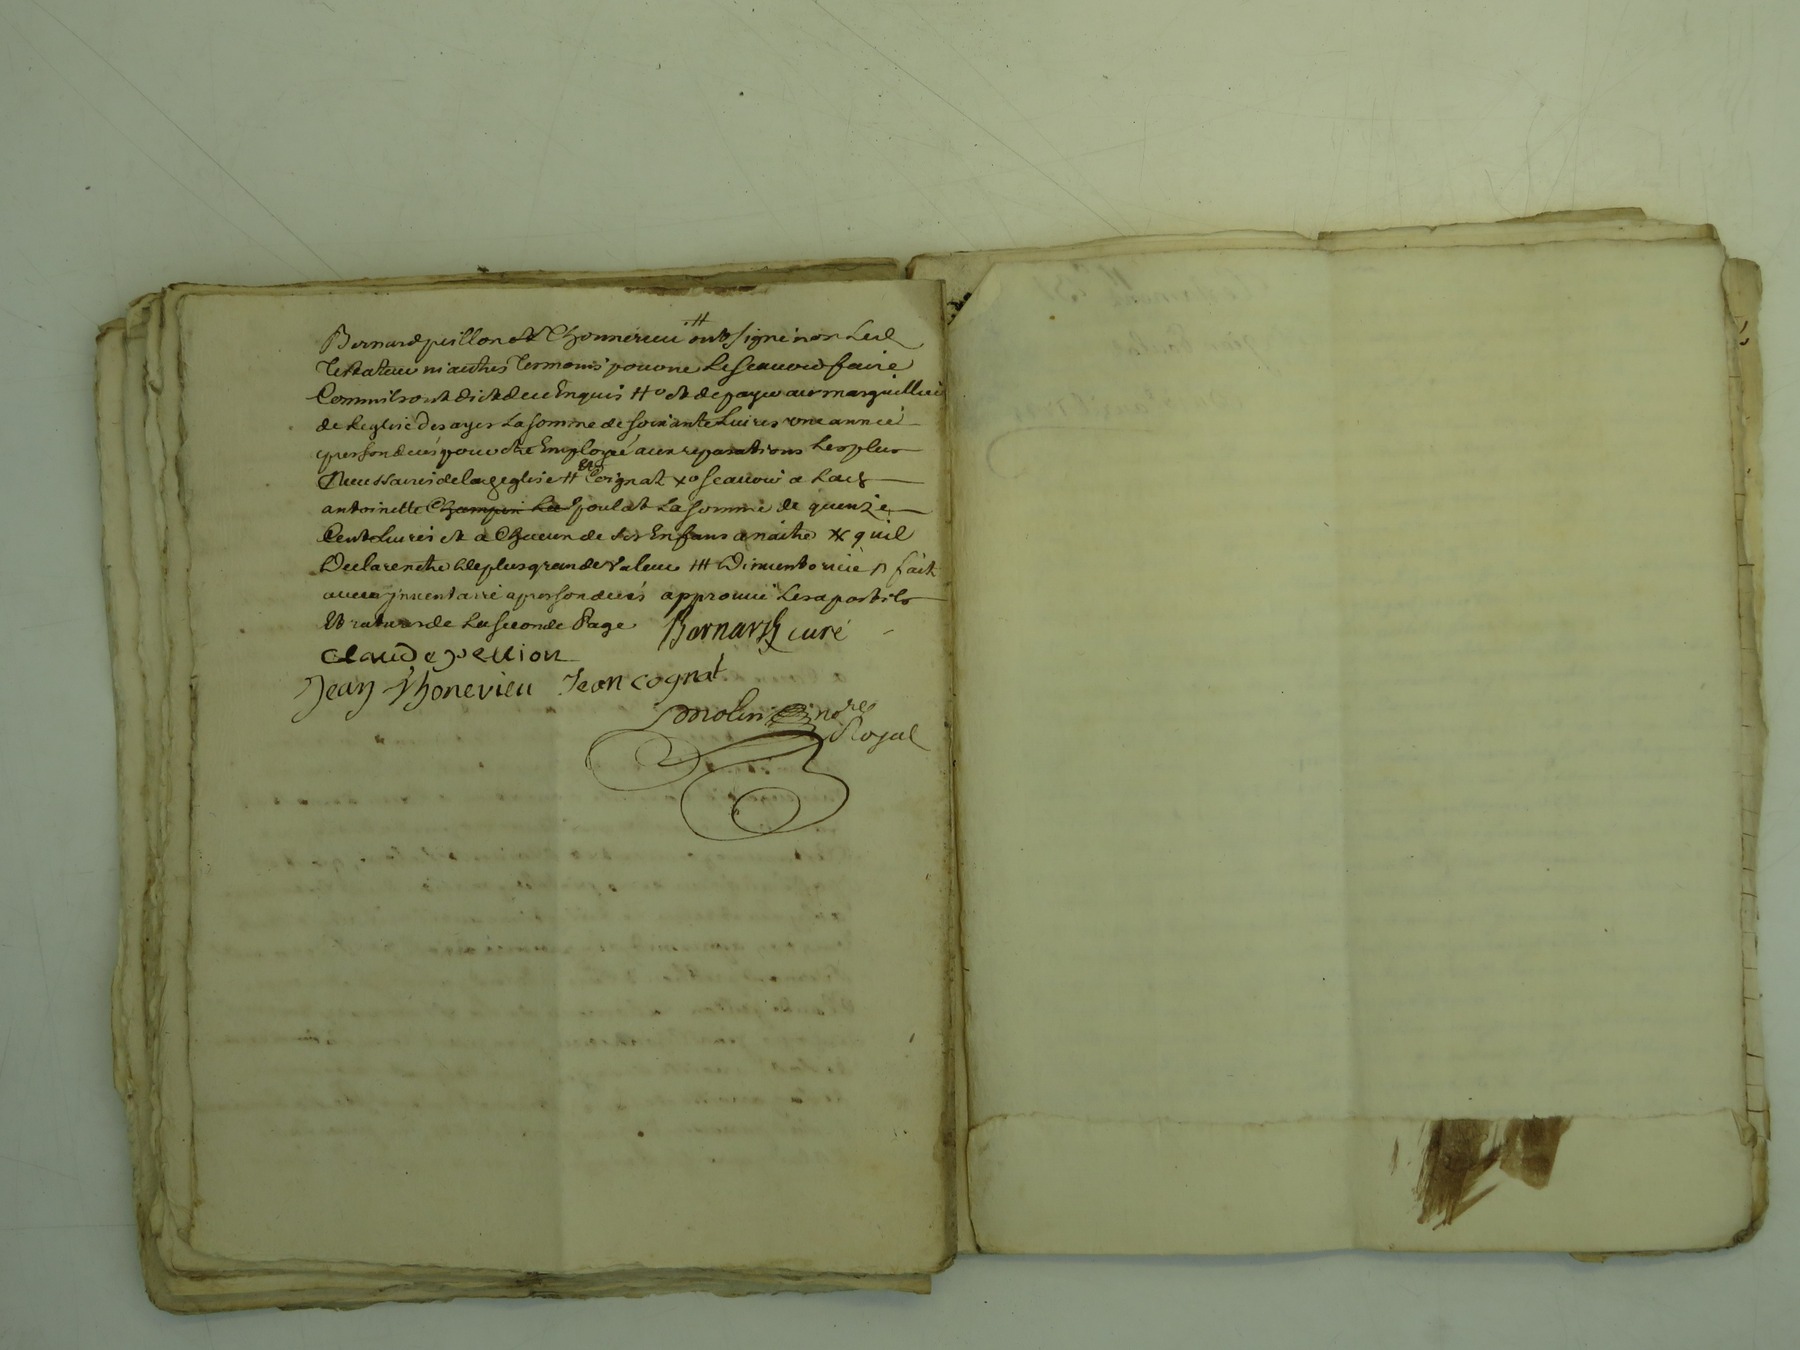 Bernard peillon et Thonnerieu # ont signé non Led
Testateur ni autres Temoins pour ne Le Scauoir faire
Comm ils ont dict de ce Enquis #° et de payer aux marguilliers
de Leglise des ayes La somme de soixante Liures vne année
apres son decés pour etre Employé aux reparations Les plus
Necessaires de lad eglise # Et Coignat x° Scauoir a Lad
antoinette Champin La poulat La somme de quenze
Cent Liures et a Chacun de Ses Enfans a naitre x quil
Declare netre de plus grande Valeur ### Dinuentorié n fait
aucun jnuentaire apres son decés approuué Les apostils
Et ratures de La Seconde Page Bernard curé
claude pellion
Jean Thonevieu Jean cognat
Molin no.re
Royal